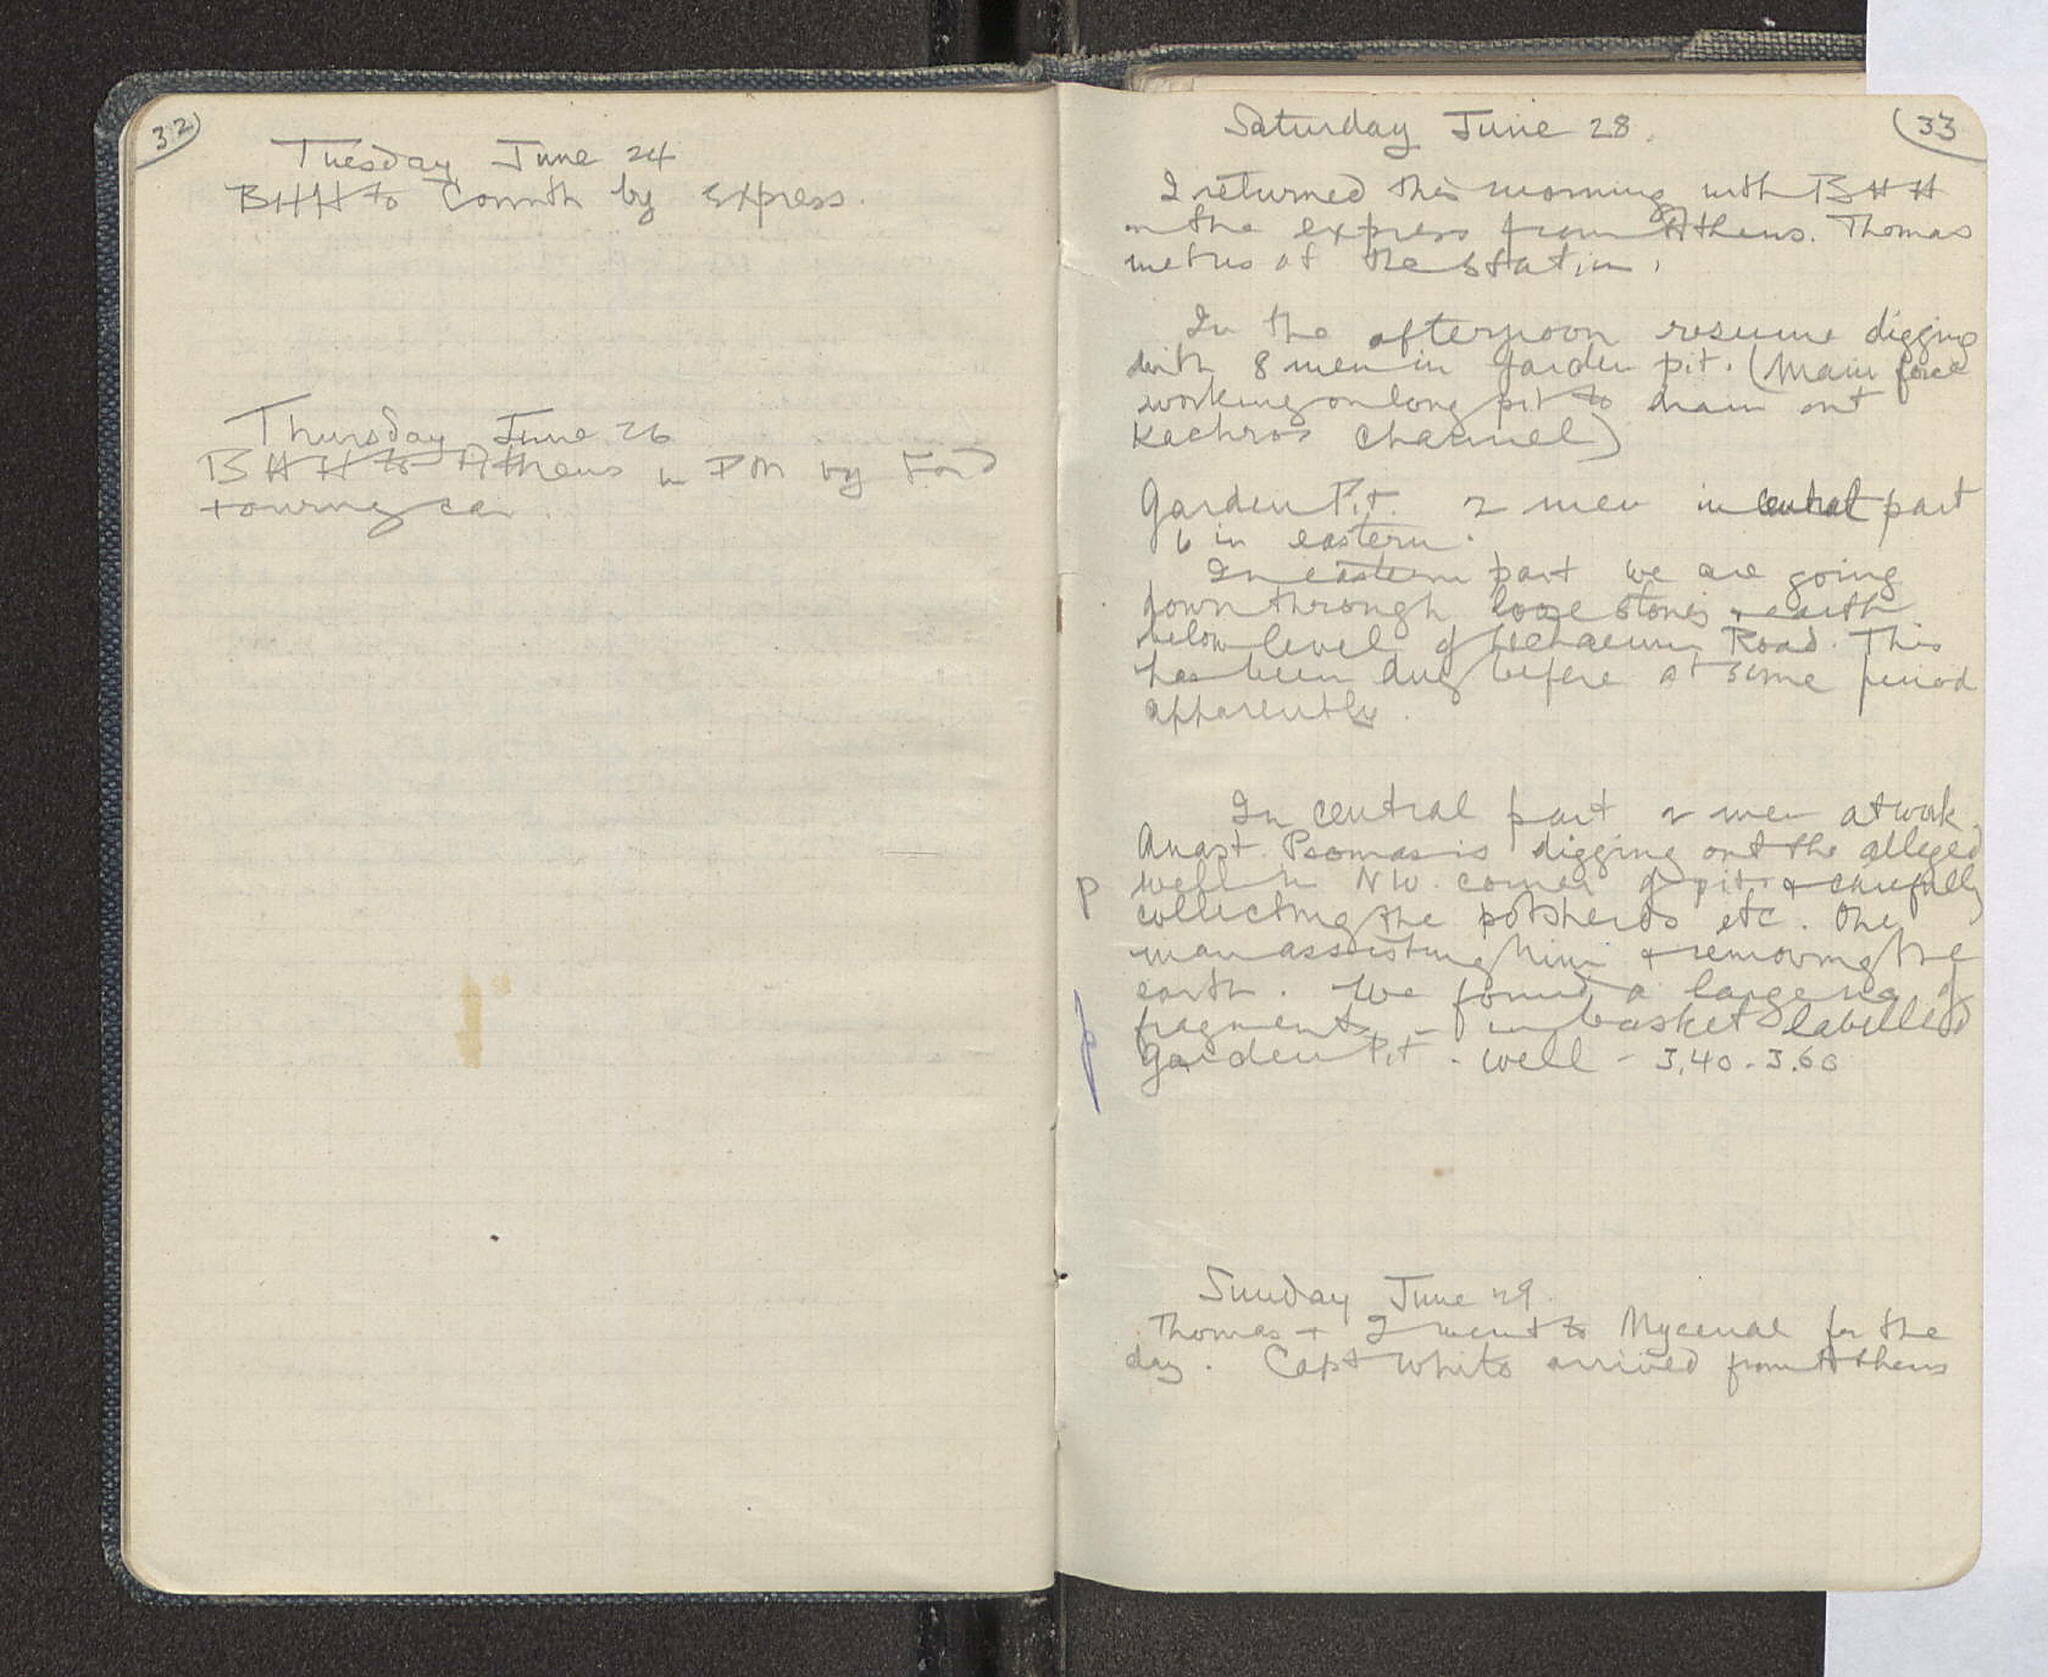 32
Tuesday June 24
BHH to Corinth by express.
Thursday June 26
BHH to Athens in PM by Ford
touring car.
33
Saturday June 28.
I returned this morning with BHH
on the express from Athens. Thomas
met us at the station.
In the afternoon resume digging
with 8 men in garden pit. (Main force
working on long pit to drain out
Kachros channel)
Garden Pit. 2 men in central part
6 in eastern.
In eastern part we are going
down through loose stones & earth
below level of Lechaeum Road. This
has been dug before at some period
apparently.
In central part 2 men at work.
Anast. Psomas is digging out the alleged
P well in NW. corner of pit & carefully
collecting the potsherds etc. One
man assisting him & removing the
earth. We found a large no of
fragments - in basket labelled
Garden Pit - well - 3.40 - 3.60
Sunday June 29.
Thomas + I went to Mycenae for the
day. Capt White arrived from Athens